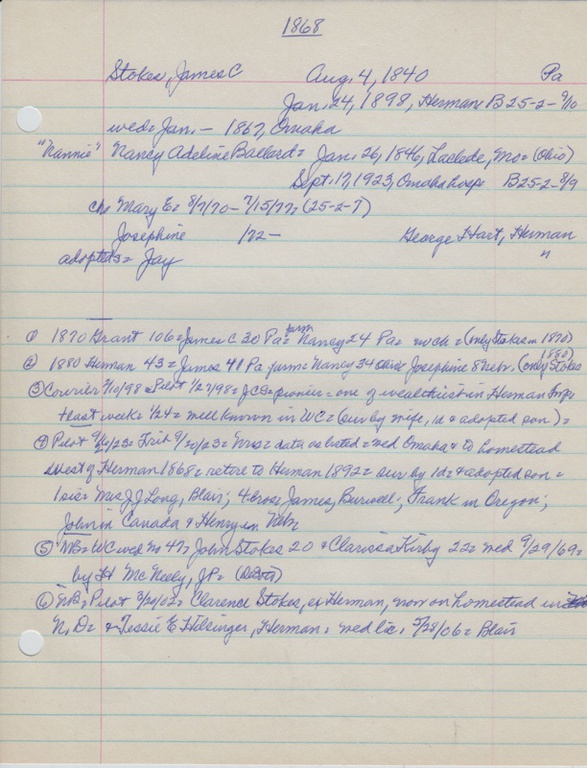 1868
Stokes, James C Aug. 4, 1840 Pa
Jan. 24, 1898, Herman B25-2-9/10
wed= Jan. - 1867, Omaha
"Nannie" Nancy Adeline Ballard= Jan. 26, 1846, Laclede, Mo= (Ohio)
Sept. 17, 1923, Omaha hosp B25-2-8/9
ch= Mary E= 8/7/70- 7/15/77= (25-2-7)
Josephine /72- George Hart, Herman
adopted s= Jay "
① 1870 Grant 106= James C 30 Pa= farm Nancy 24 Pa= no ch = (only Stokes in 1870)
② 1880 Herman 43= James 41 Pa farm= Nancy 34 Josephine 8 Nebr. (only Stokes 1880)
③ Courier 2/10/98 & Pilot 1/27/98= JC S= pioneer= one of wealthiest in Herman
last week= 1/24= well known in WC= (sur by wife, 1d & adopted son)=
④ Pilot 9/26/23= Trib 9/20/23= Mrs= data as listed= wed Omaha & to homestead
west of Herman 1868= retire to Herman 1892= sur by 1d= & adopted son=
1 sis= Mrs J J Long, Blair; 4 bros James, Burwell; Frank in Oregon;
John in Canada & Henry in Nebr
⑤ NB= WC wed no 47= John Stokes 20 & Clarissa Kirby 22= wed 9/29/69=
by H McNeely, JP=
⑥ NB= Pilot 3/20/02= Clarence Stokes, ex Herman, now on homestead in
N. D= & Tessie E Hilsinger, Herman, wed lic, 5/28/06= Blair